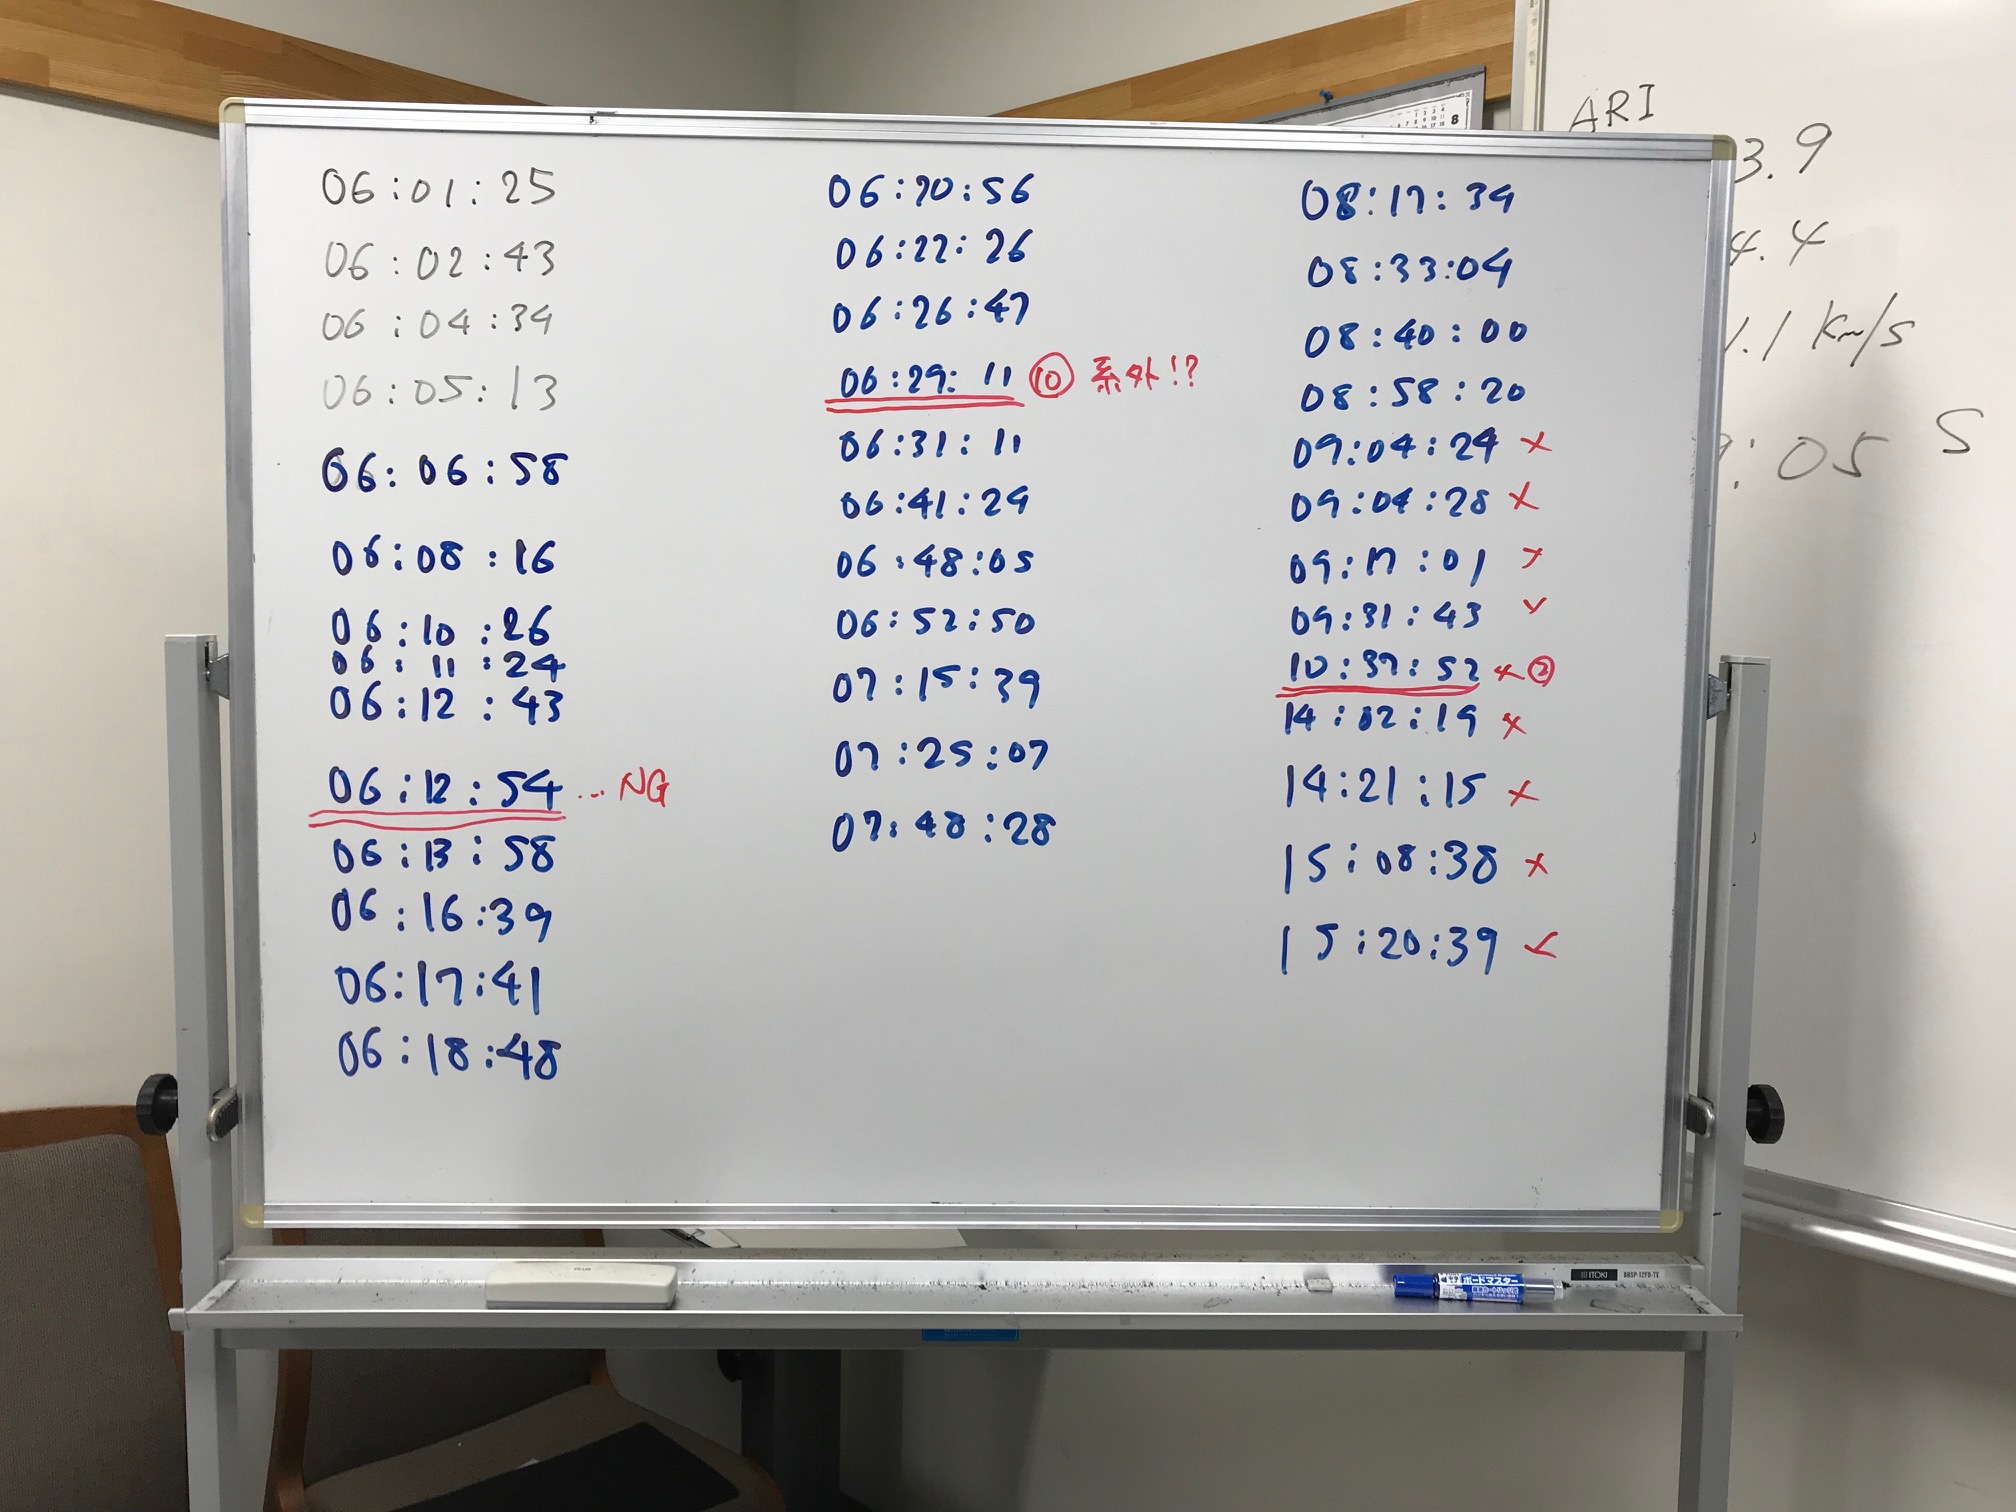 06:01:25
06:02:43
06:04:34
06:05:13
06:06:58
06:08:16
06:10:26
06:11:24
06:12:43
06:12:54 ... NG
06:13:58
06:16:39
06:17:41
06:18:48
06:20:56
06:22:26
06:26:47
06:29:11 ⑩ 系外!?
06:31:11
06:41:29
06:48:05
06:52:50
07:15:39
07:25:07
07:48:28
08:17:39
08:33:04
08:40:00
08:58:20
09:04:24 ×
09:04:28 ×
09:17:01 ×
09:31:43 ×
10:37:52 × ②
14:02:19 ×
14:21:15 ×
15:08:38 ×
15:20:39 ×
ARI
3.9
4.4
1.1 km/s
:05 S
8
PLUS
ITOKI
ボードマスター